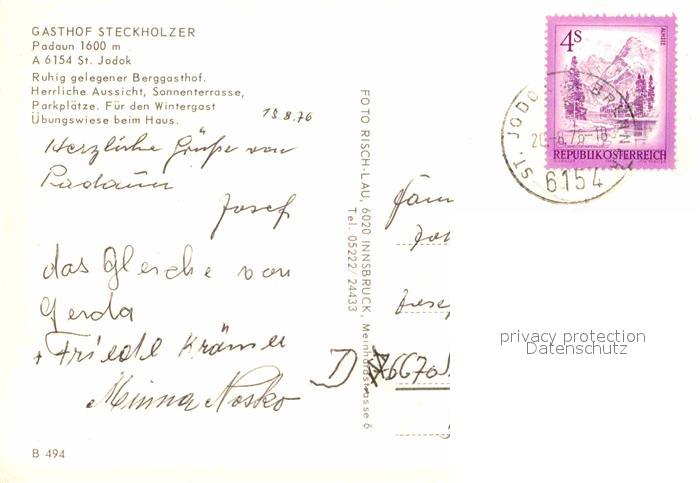 GASTHOF STECKHOLZER
Padaun 1600 m
A 6154 St. Jodok
Ruhig gelegener Berggasthof.
Herrliche Aussicht, Sonnenterrasse,
Parkplätze. Für den Wintergast
Übungswiese beim Haus.
18.8.76
Herzliche Grüße von
Padaun
Josef
das Gleiche von
Gerda
+ Friedl Krämer
Minna Nosko
B 494
FOTO RISCH-LAU, 6020 INNSBRUCK, Meinhardstrasse 6
Tel. 05222/24433
4S
ALMSEE
REPUBLIK ÖSTERREICH
ST. JODOK
6154
Fam
D 6670
privacy protection
Datenschutz